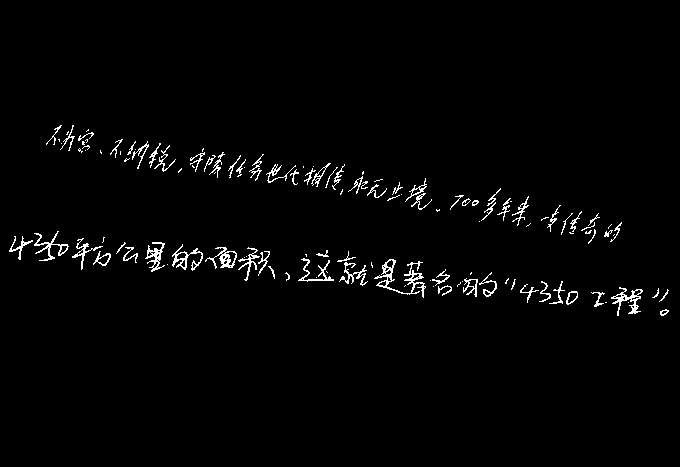 不为官、不纳税,守陵任务世代相传,永无止境。700多年来,专传奇的
4350平方公里的面积、这就是著名的“4350工程”。